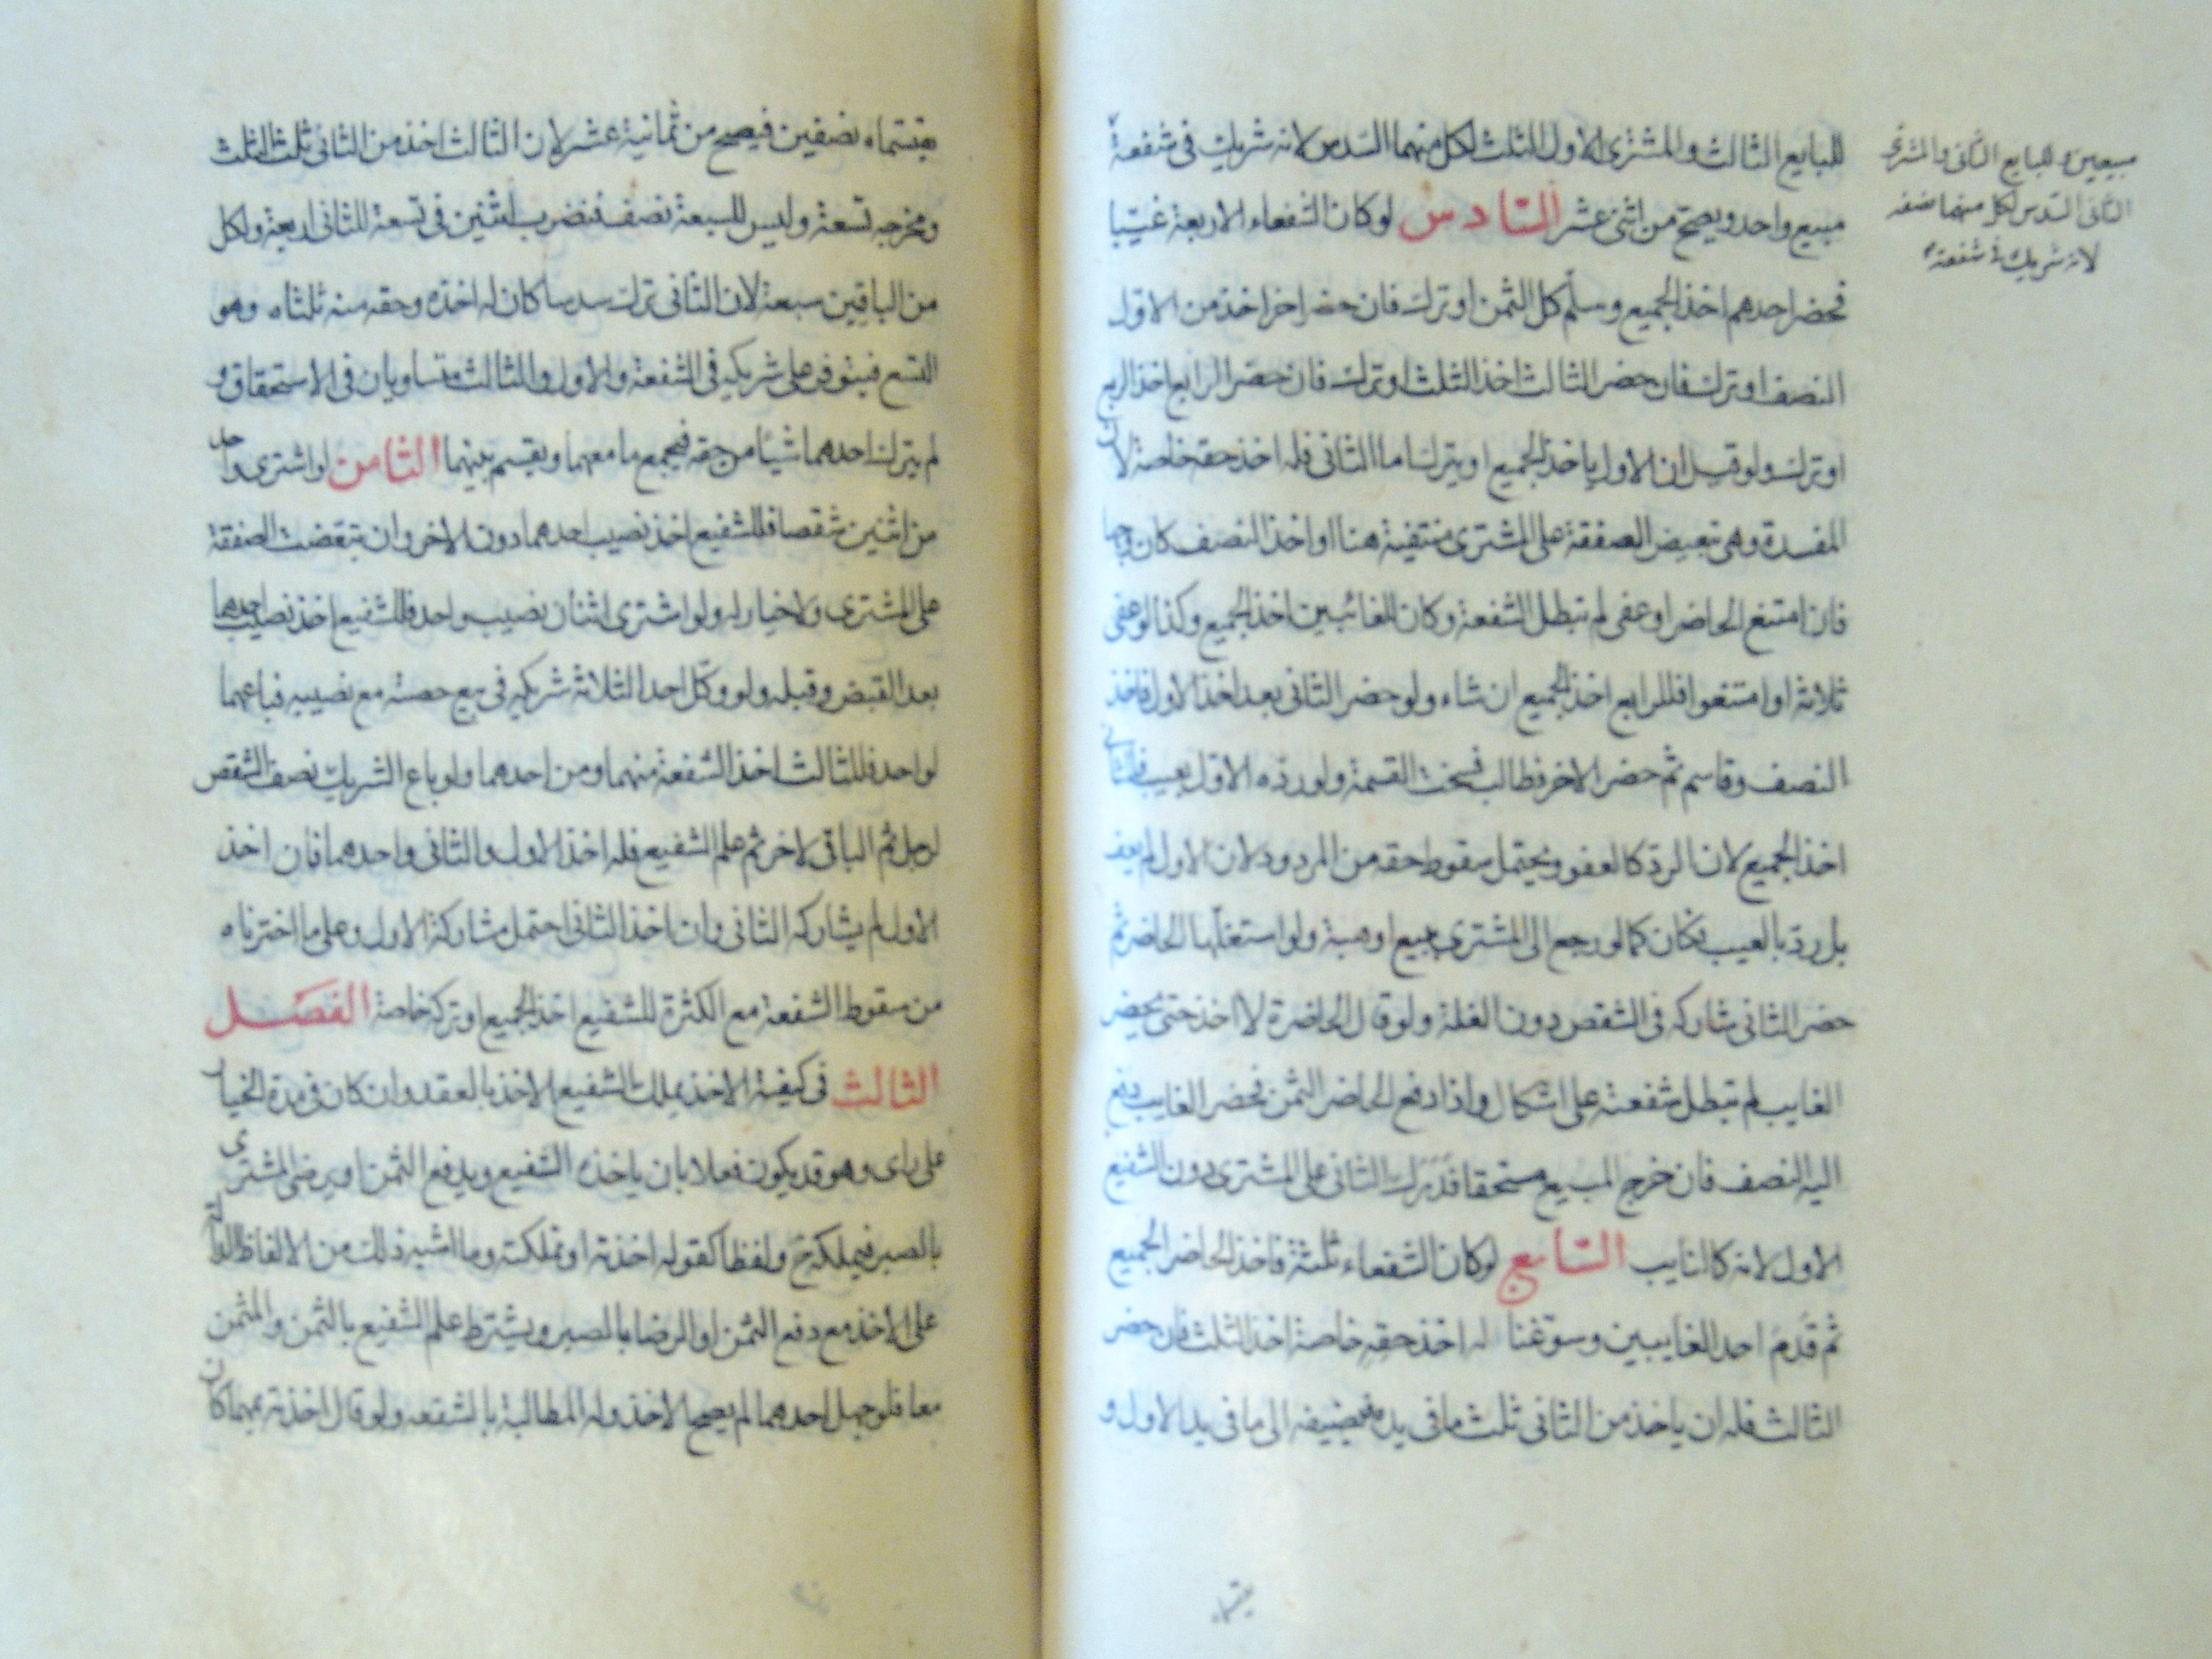 للبايع الثالث والمشتري الاول الثلث لكل منهما السدس لانه شريك في شفعة
مبيع واحد ويصح من اثنى عشر السادس لو كان الشفعاء الاربعة غيبا
فحضر احدهم اخذ الجميع وسلم كل الثمن او ترك فان حضر اخر اخذ من الاول
النصف او ترك فان حضر الثالث اخذ الثلث او ترك فان حضر الرابع اخذ الربع
او ترك ولو قيل ان الاول ياخذ الجميع او يترك اما الثاني فله اخذ حقه خاصة لان
المفسدة وهي تبعيض الصفقة على المشترى منتفية هنا او اخذ النصف كان وجها
فان امتنع الحاضر او عفى لم تبطل الشفعة وكان للغائبين اخذ الجميع وكذا لو عفى
ثلاثة او امتنعوا فللرابع اخذ الجميع ان شاء ولو حضر الثاني بعد اخذ الاول فاخذ
النصف وقاسم ثم حضر الاخر فطالب فسخت القسمة ولو رده الاول بعيب فللثاني
اخذ الجميع لان الرد كالعفو ويحتمل سقوط حقه من المردود لان الاول لم يعف
بل رد بالعيب فكان كما لو رجع الى المشترى ببيع او هبة ولو استغلها الحاضر ثم
حضر الثاني شاركه في الشقص دون الغلة ولو قال الحاضر لا اخذ حتى يحضر
الغايب لم تبطل شفعته على اشكال واذا دفع الحاضر الثمن فحضر الغايب دفع
اليه النصف فان خرج المبيع مستحقا فدرك الثاني على المشترى دون الشفيع
الاول لانه كالنايب السابع لو كان الشفعاء ثلثة فاخذ الحاضر الجميع
ثم قدم احد الغايبين وسوغنا له اخذ حقه خاصة اخذ الثلث فان حضر
الثالث فله ان ياخذ من الثاني ثلث ما في يده فيضيفه الى ما في يد الاول و
مبيعين وللبايع الثاني والمشترى
الثاني السدس لكل منهما نصفه
لانه شريك في شفعة
يقتسماه
يقتسماه نصفين فيصح من ثمانية عشر لان الثالث اخذ من الثاني ثلث الثلث
ومخرجه تسعة وليس للسبعة نصف فنضرب اثنين في تسعة للثاني اربعة ولكل
من الباقين سبعة لان الثاني ترك سدسا كان له اخذه وحقه منه ثلثاه وهو
التسع فيتوفر على شريكيه في الشفعة والاول والثالث متساويان في الاستحقاق و
لم يترك احدهما شيئا من حقه فيجمع ما معهما ويقسم بينهما الثامن لو اشترى واحد
من اثنين شقصا فللشفيع اخذ نصيب احدهما دون الاخر وان تبعضت الصفقة
على المشترى ولا خيار له ولو اشترى اثنان نصيب واحد فللشفيع اخذ نصيب احدهما
بعد القبض وقبله ولو وكل احد الثلاثة شريكه في بيع حصته مع نصيبه فباعهما
لواحد فللثالث اخذ الشفعة منهما ومن احدهما ولو باع الشريك نصف الشقص
لرجل ثم الباقي لاخر ثم علم الشفيع فله اخذ الاول والثاني واحدهما فان اخذ
الاول لم يشاركه الثاني وان اخذ الثاني احتمل مشاركة الاول وعلى ما اخترناه
من سقوط الشفعة مع الكثرة للشفيع اخذ الجميع او تركه خاصة الفصل
الثالث في كيفية الاخذ يملك الشفيع الاخذ بالعقد وان كان في مدة الخيار
على راى وهو قد يكون فعلا بان ياخذه الشفيع ويدفع الثمن او يرضى المشترى
بالصبر فيملكه ح ولفظا كقوله اخذته او تملكته وما اشبه ذلك من الالفاظ الدالة
على الاخذ مع دفع الثمن او الرضا بالصبر ويشترط علم الشفيع بالثمن والمثمن
معا فلو جهل احدهما لم يصح الاخذ وله المطالبة بالشفعة ولو قال اخذته بمهما كان